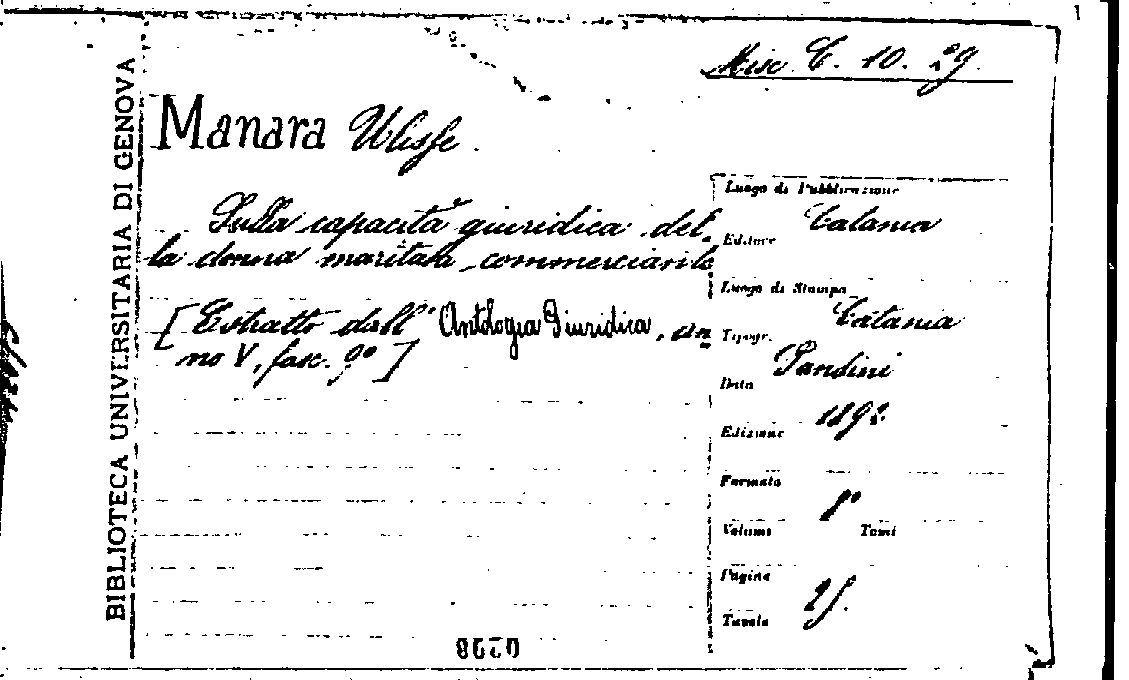 1
Misc. C. 10. 29.
BIBLIOTECA UNIVERSITARIA DI GENOVA
Manara Ulisse.
Sulla capacità giuridica del-
la donna maritata commerciante
[Estratto dall' Antologia Giuridica, an-
no V, fasc. 9º]
Luogo di Pubblicazione
Catania
Editore
Luogo di Stampa
Catania
Tipogr.
Pandini
Data
1892
Edizione
Formato
8º
Volumi Tomi
Pagine
25.
Tavole